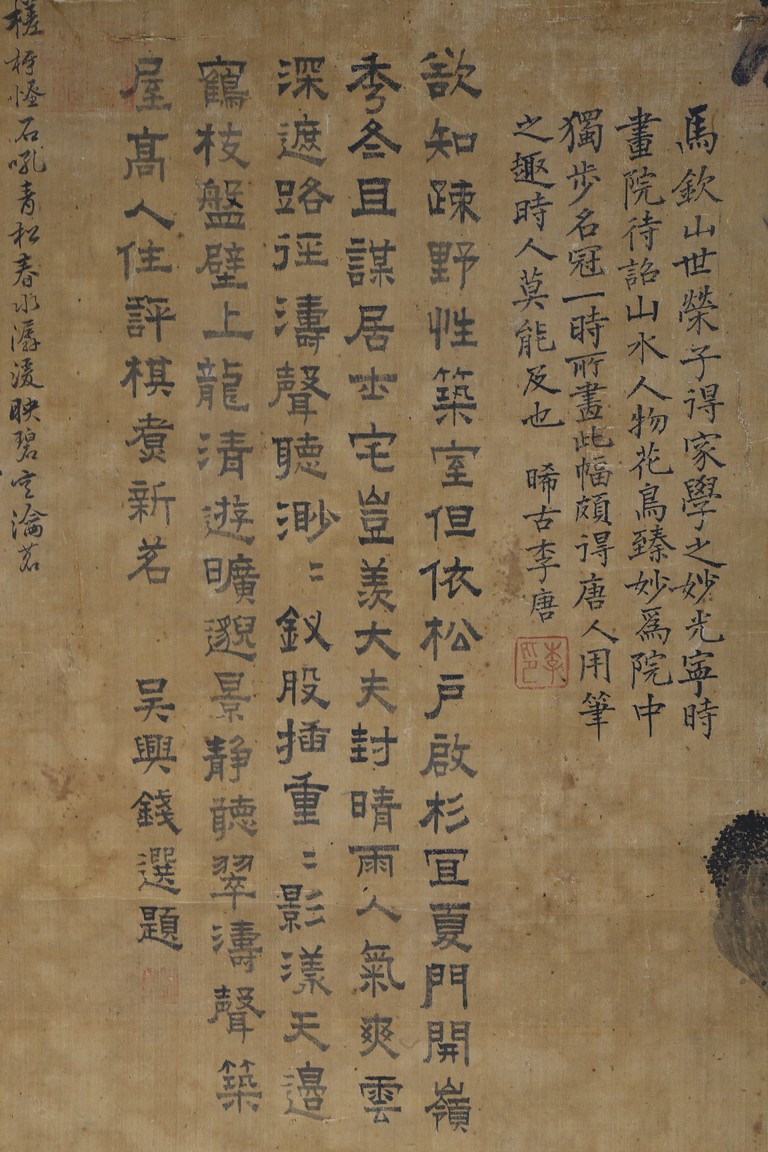 馬欽山世榮子得家學之妙光寧時
畫院待詔山水人物花鳥臻妙爲院中
獨步名冠一時所畫此幅頗得唐人用筆
之趣時人莫能及也 晞古李唐
李唐印
欲知疎野性築室但依松戶啟杉宜夏門開嶺
秀冬且謀居士宅豈羨大夫封晴雨人氣爽雲
深遮路徑濤聲聽渺〻釵股插重〻影漾天邊
鶴枝盤壁上龍清遊曠邈景靜聽翠濤聲築
屋高人住評棋煑新茗 吳興錢選題
槎枒怪石吼青松春水潺湲映碧空瀹茗